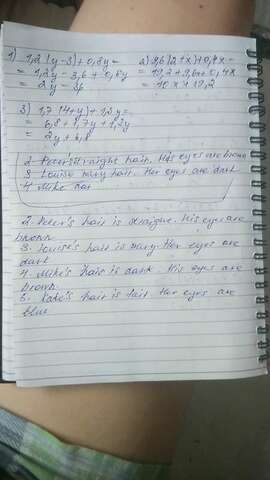 1) 1,2(y-3)+0,8y=
= 1,2y-3,6+0,8y
= 2y-3,6
2) 9,6(2+x)+0,4x=
= 19,2+9,6x+0,4x
= 10x+19,2
3) 1,7(4+y)+1,3y=
= 6,8+1,7y+1,3y
= 2y+6,8
2 Peter straight hair. His eyes are brown
3 Louise wavy hair. Her eyes are dark
4 Mike
2. Peter's hair is His eyes are
brown
3. hair is wavy. Her eyes are
dark
4. Mike's hair is dark. His eyes are
brown.
5. Kate's hair is fair Her eyes are
blue